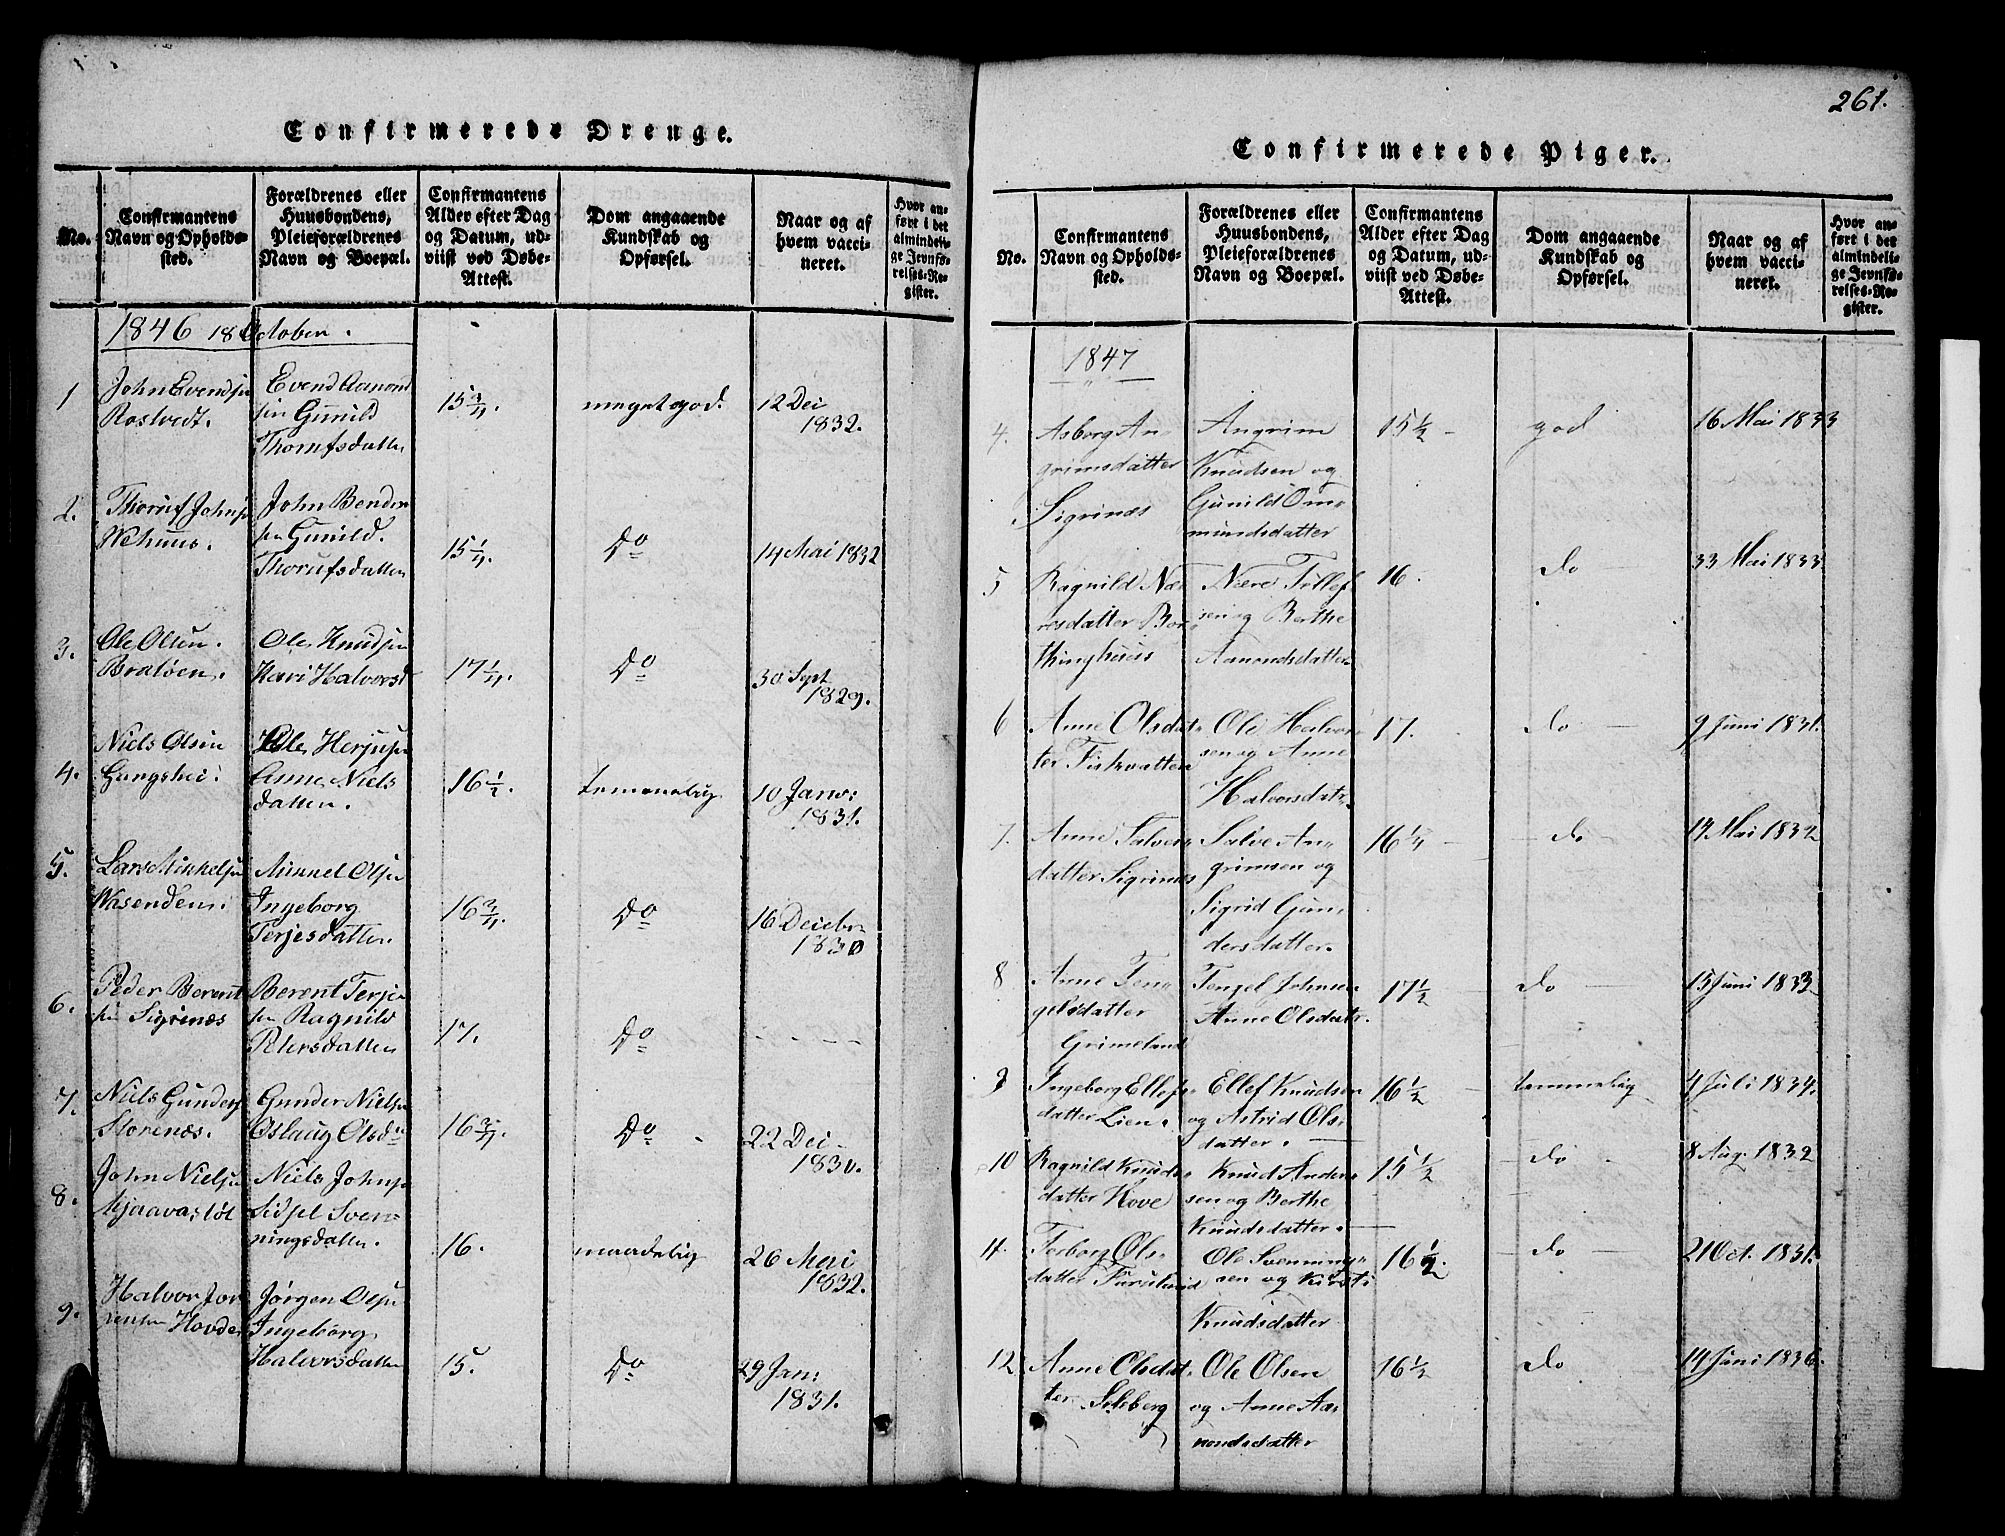 261.
Confirmerede Drenge.
No.
Confirmantens
Navn og Opholds-
sted.
Forældrenes eller
Huusbondens,
Pleieforældrenes
Navn og Boepæl.
Confirmantens
Alder efter Dag
og Datum, ud-
viist ved Døbe-
Attest.
Dom angaaende
Kundskab og
Opførsel.
Naar og af
hvem vacci-
neret.
Hvor an-
ført i det
almindeli-
ge Jevnfø-
relses-Re-
gister.
1846 18 October.
1
John Evends
Rostvedt.
Evend Aamond
sen Gunild
Thorufsdatter
15 3/4.
meget god.
12 Dei
1832.
2.
Thoruf Johns
Wehuus.
John Bendix
sen Gunild.
Thorufsdatter
15 1/4.
Do
14 Mai 1832
3.
Ole Olsen.
Braløen.
Ole Knudsen
Kari Halvorsd
17 1/4.
Do
30 Sept
1829.
4.
Niels Olsen
Ole Herjus
Anne Niels
datter.
16 1/2.
temmelig
10 Janv:
1831.
5.
Lars Mikkelsen
Wasenden.
Mikkel Olsen
Ingeborg
Terjesdatter.
16 3/4.
Do
16 Decbr
1830
6.
Peder Berent
sen Sigrenæs
Berent Terje
sen Ragnild
Petersdatter
17.
Do
- - - -
7.
Niels Gunders
Storenæs.
Gunder Nielsen
Oslaug Olsd
16 3/4.
Do
22 Dei
1830.
8.
John Nielsen
Mjaavasløl
Niels Johns
Sidsel Sven
ningsdatter.
16.
maadelig
26 Mai
1832.
9.
Halvor Jør
rensen Hovde
Jørgen Olsen
Ingeborg
Halvorsdatter
15.
Do
29 Jan:
1831.
Confirmerede Piger.
No.
Confirmantens
Navn og Opholds-
sted.
Forældrenes eller
Huusbondens,
Pleieforældrenes
Navn og Boepæl.
Confirmantens
Alder efter Dag
og Datum, ud-
viist ved Døbe-
Attest.
Dom angaaende
Kundskab og
Opførsel.
Naar og af
hvem vacci-
neret.
Hvor an-
ført i det
almindeli-
ge Jevnfø-
relses-Re-
gister.
1847
4.
Asborg An
grimsdatter
Sigrinæs
Angrim
Knudsen og
Gunild Om-
mundsdatter
15 1/2 -
god
16 Mai 1833
5
Ragnild Næ
resdatter Bor
thinghuus
Nære Tillef
sen og Berthe
Aanondsdatter
16.
do
33 Mai 1833
6
Anne Olsdat-
ter Fiskvatten
Ole Halvor
sen og Anne
Halvorsdatr.
17.
do
9 Juni 1831.
7.
Anne Salves-
datter Sigrinæs
Salve An-
grimsen og
Sigrid Gun-
dersdatter.
16 1/4
do
14 Mai 1832
8
Anne Ten-
gelsdatter
Grimeland
Tengel Johnsen
Anne Olsdatr.
17 1/2
do
15 Juni 1833
9
Ingeborg Ellefs-
datter Lien.
Ellef Knudsen
og Astrid Ols-
datter.
16 1/2
temmelig
4 Juli 1834.
10
Ragnild Knuds-
datter Hove
Knud Anden-
sen og Berthe
Knudsdatter.
15 1/2
do
8 Aug. 1832
11.
Torborg Ols-
datter
Ole Svenning-
sen og Kirsti
Knudsdatter
16 1/2
do
21 Oct. 1831.
12.
Anne Olsdat-
ter Selsberg
Ole Olsen
og Anne Aa-
nondsdatter
16 1/2
do
14 Juni 1836.